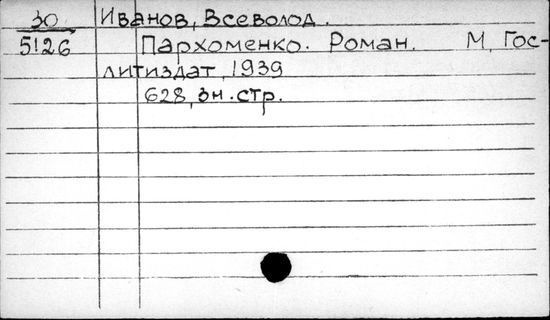 30 Иванов, Всеволод.
5126 Пархоменко. Роман. М, Гос-
литиздат, 1939
628, 3н.стр.